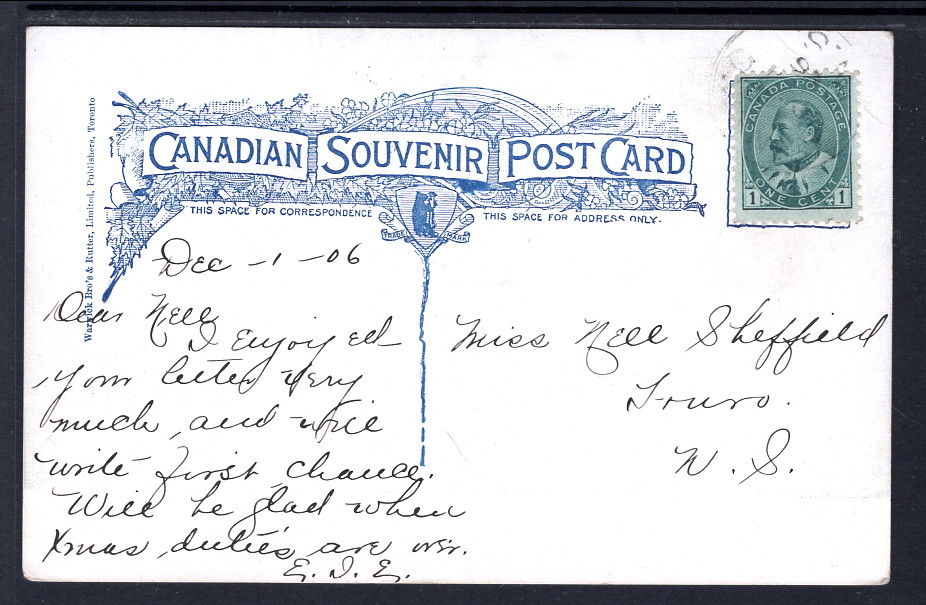 CANADIAN SOUVENIR POST CARD
THIS SPACE FOR CORRESPONDENCE
THIS SPACE FOR ADDRESS ONLY.
TRADE MARK
Warwick Bro's & Rutter, Limited, Publishers, Toronto
CANADA POSTAGE
1 ONE CENT 1
Dec - 1 - 06
Dear Nell
I enjoyed
your letter very
much, and will
write first chance.
Will be glad when
Xmas duties are over.
E. I. E.
Miss Nell Sheffield
Truro.
N. S.